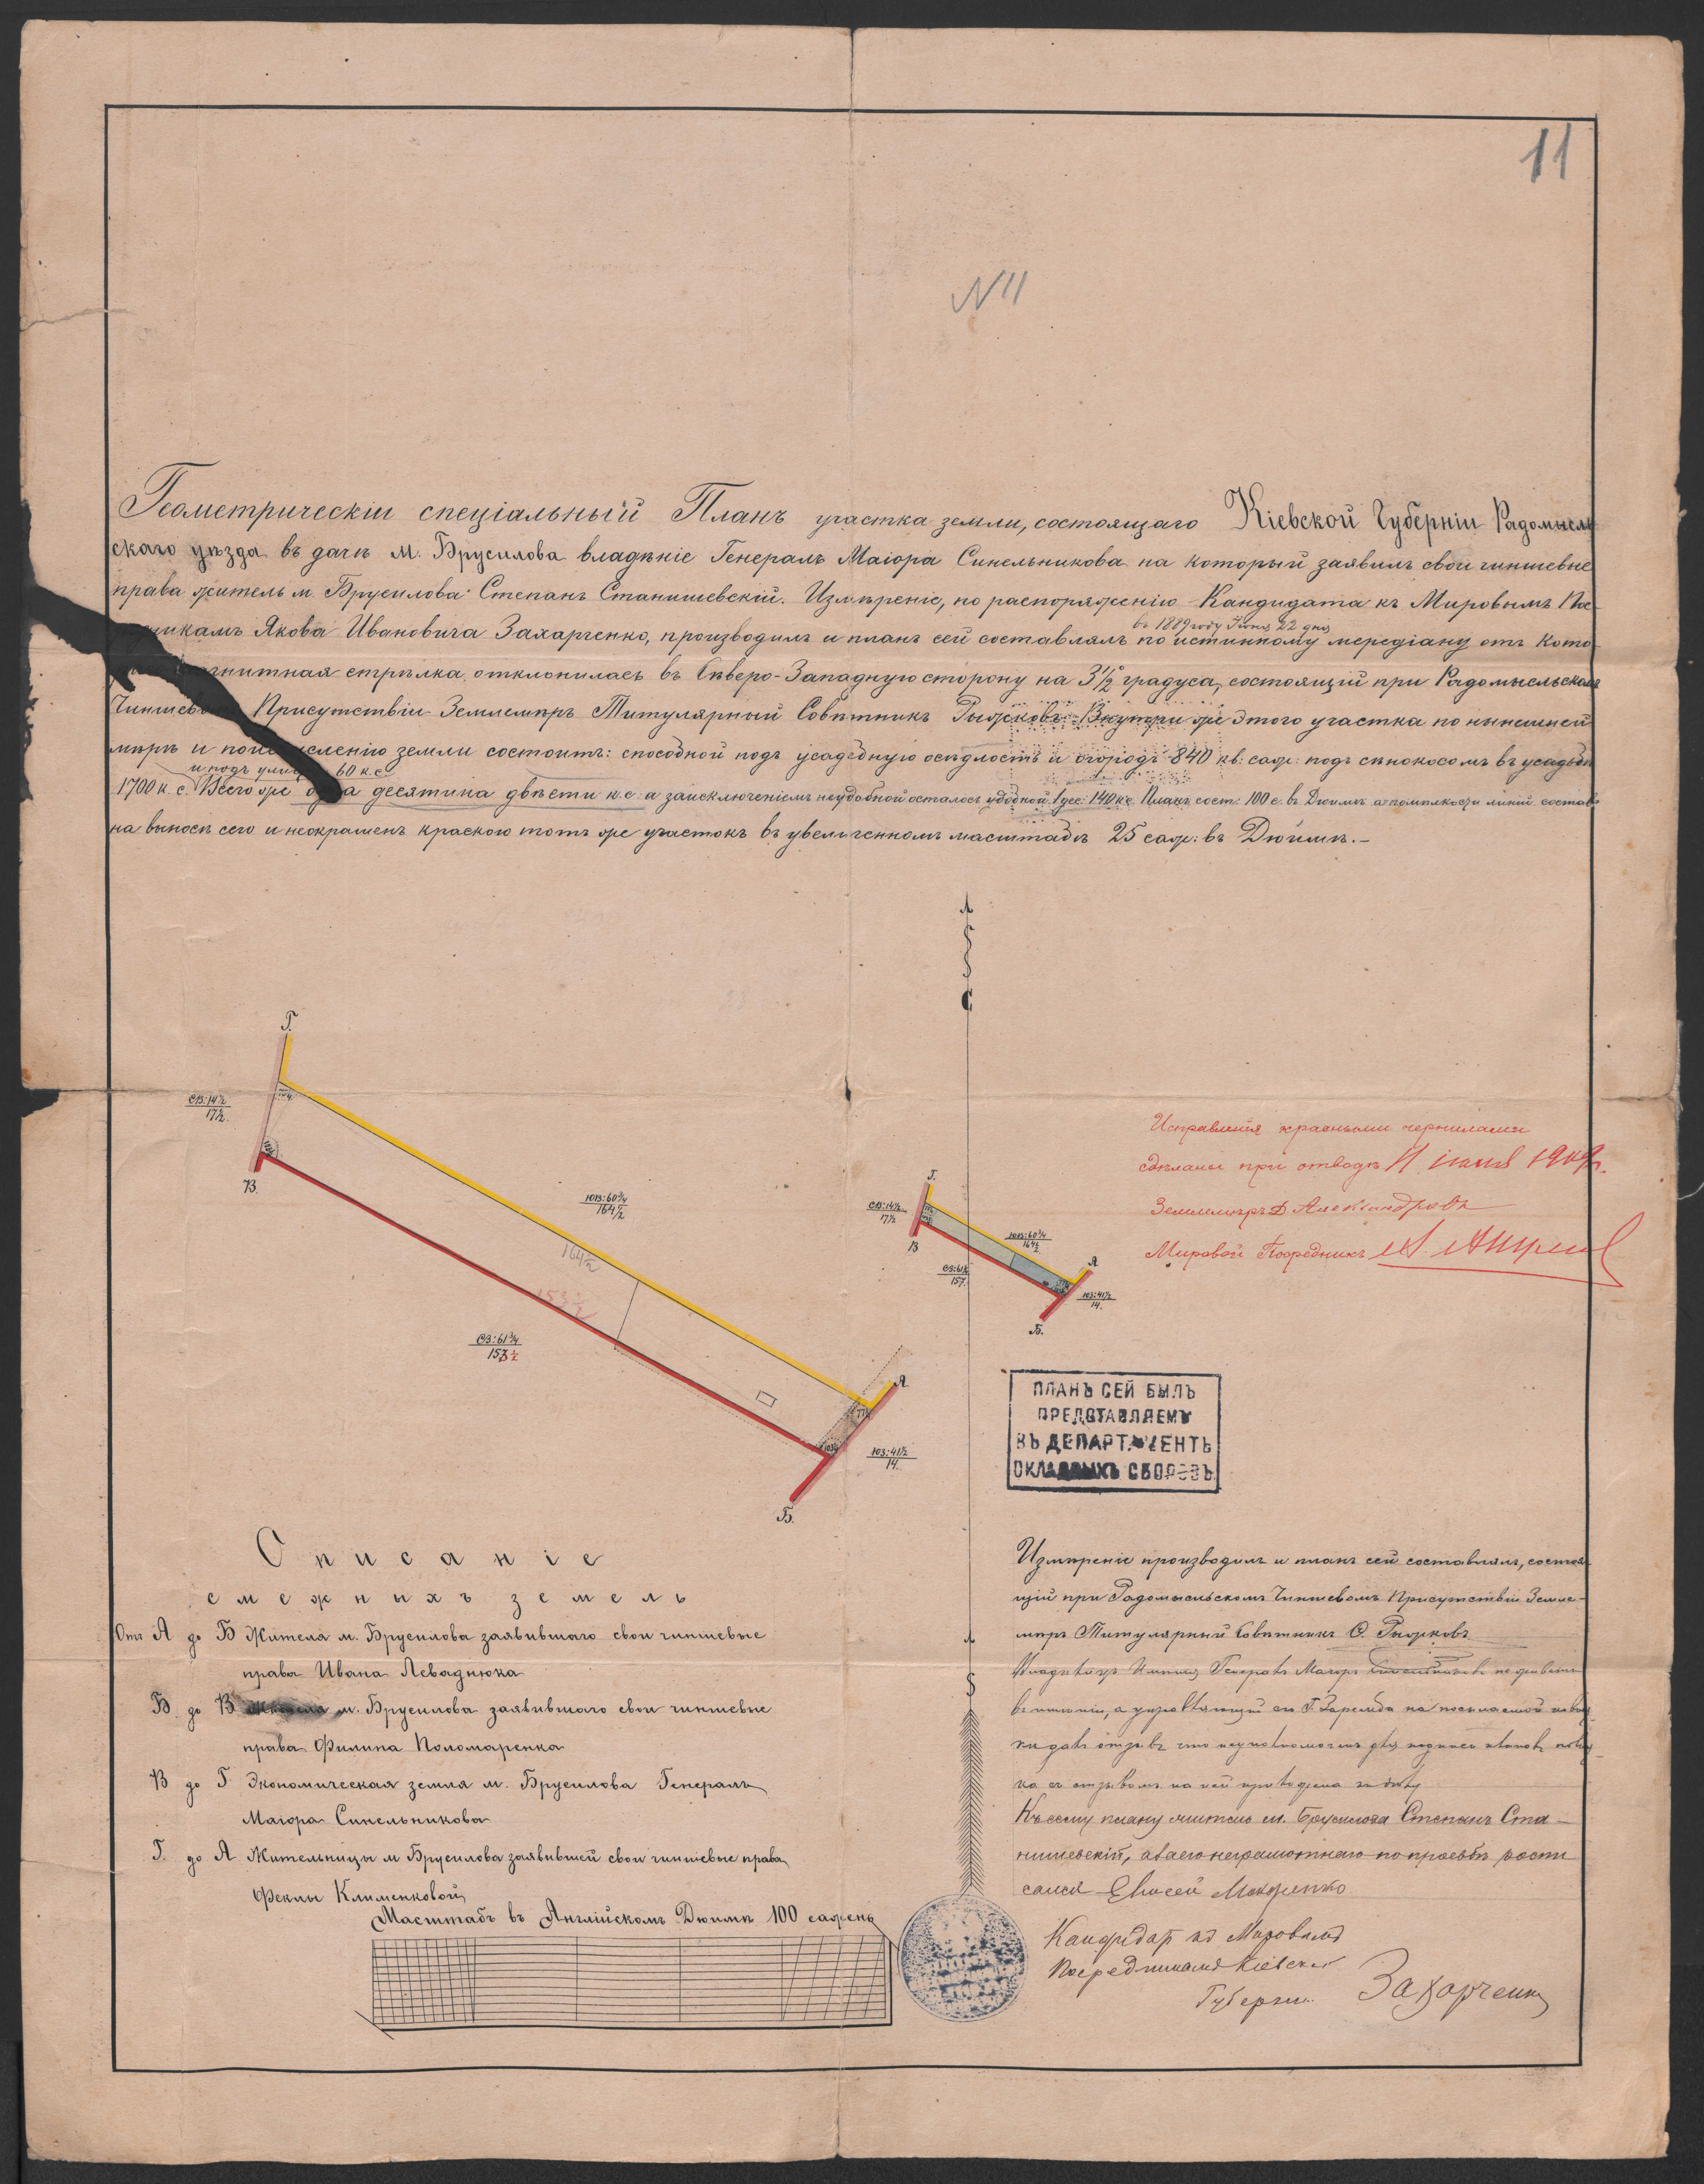 11
N 11
Геометрическіи спеціальный Планъ участка земли, состоящаго Кіевской Губерніи Радомысль
скаго уѣзда въ дачѣ м. Брусилова владѣніе Генералъ Маіора Синельникова на который заявилъ свои чиншевые
права житель м. Брусилова Степанъ Станишевскій. Измѣреніе, по распоряженію Кандидата къ Мировымъ Пос-
никамъ Якова Ивановича Захарченко, производилъ и планъ сей составлялъ по истинному мередіану отъ кото-
въ 1889 году Іюня 22 дня
гнитная стрѣлка отклонилась въ Сѣверо-Западную сторону на 3 1/2° градуса, состоящій при Радомысльскомъ
Чиншево Присутствіи Землемѣръ Титулярный Совѣтникъ Рыжковъ. Внутри же этого участка по нынешней
мѣрѣ и по исленію земли состоитъ: способной подъ усадебную осѣдлость и огородъ 840 кв: саж: подъ сѣнокосомъ въ усадьбѣ
и подъ улиц 60 к.с.
1700 к. с. Всего же одна десятина двѣсти к.с: а заисключеніемъ неудобной осталось удобной 1 дес: 140 к.с. Планъ сост: 100 с. въ Дюймѣ а помѣлкости линій состав
на выноскѣ сего и неокрашенъ краскою тотъ же участокъ въ увеличенномъ масштабѣ 25 саж: въ Дюймѣ.-
С
Г.
СВ:14½
17½.
В.
ЮВ:60¾
164½
164½
153½
СЗ:61¾
153½
А
ЮЗ:41½
14.
Б.
Г.
СВ:14½
17½
В
ЮВ:60¾
164½
СЗ:61¾
157.
А
ЮЗ:41½
14.
Б.
Исправленія красными чернилами
сдѣланы при отводѣ 11 іюня
Землемѣръ Александровъ
Мировой Посредникъ
ПЛАНЪ СЕЙ БЫЛЪ
ПРЕДСТАВЛЯЕМЪ
ВЪ ДЕПАРТАМЕНТЪ
ОКЛАДНЫХЪ СБОРОВЪ
Описаніе
смежныхъ земель
Отъ А до Б Жителя м. Брусилова заявившаго свои чиншевые
права Ивана Левадnюка
Б до В Жителя м. Брусилова заявившаго свои чиншевые
права Филипа Поломаренка
В до Г Экономическая земля м. Брусилова Генералъ
Маіора Синельникова
Г. до А Жительницы м Брусилова заявившей свои чиншевые права
Феклы Клименковой
Масштабъ въ Англійскомъ Дюймѣ 100 сажень
Измѣреніе производилъ и планъ сей составлялъ, состоя-
щій при Радомысльскомъ Чиншевомъ Присутствіи Земле-
мѣръ Титулярный Совѣтникъ Рыжковъ
Владѣлецъ Имѣнія Генералъ Маіоръ Синельниковъ не живетъ
въ имѣніи, а управляющій его Г. Заремба
Къ сему плану житель м. Брусилова Степанъ Ста-
нишевскій, а за его неграмотнаго по просьбѣ роспи
сался Елисей Макаренко
Кандидат къ Мировымъ
Посредникамъ Кіевской
Губерніи Захарченко